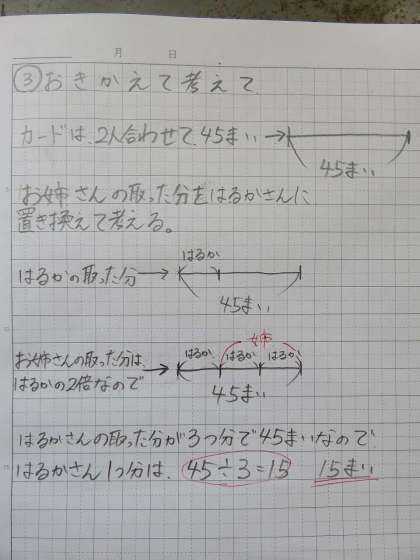 月 日
③おきかえて考えて
カードは、2人合わせて、45まい→
45まい
お姉さんの取った分をはるかさんに
置き換えて考える。
はるか
はるかの取った分→
45まい
姉
はるか はるか はるか
お姉さんの取った分は、→
はるかの2倍なので
45まい
はるかさんの取った分が3つ分で45まいなので
はるかさん1つ分は、45÷3=15 15まい